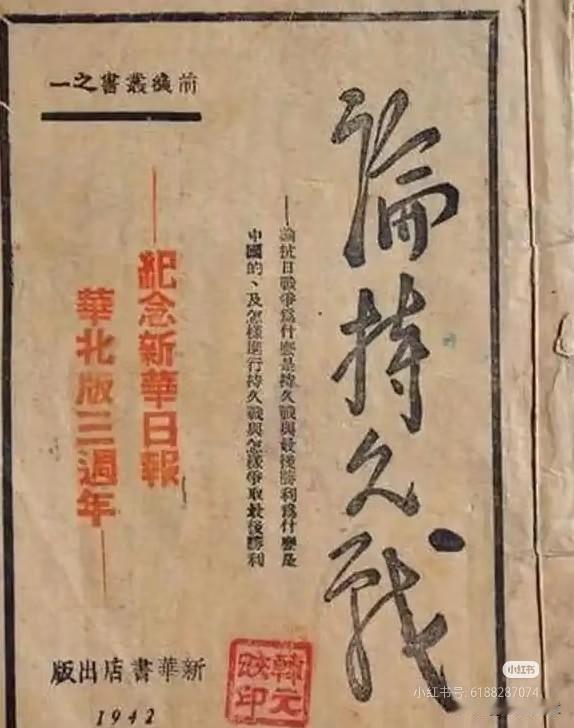 前綫叢書之一
論持久戰
——論抗日戰爭爲什麽是持久戰與最後勝利爲什麽是
中國的、及怎樣進行持久戰與怎樣爭取最後勝利
——紀念新華日報
華北版三週年——
新華書店出版
1942
韓元
印
小红书
小红书号: 6188287074